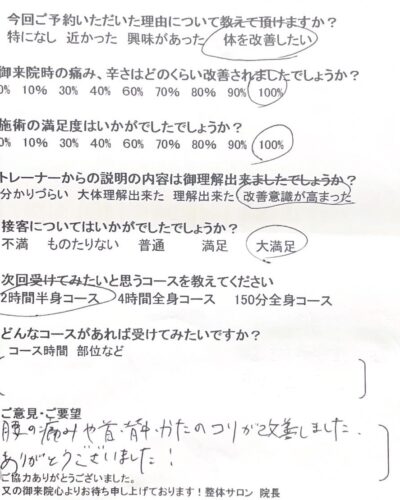 今回ご予約いただいた理由について教えて頂けますか?
特になし 近かった 興味があった 体を改善したい
御来院時の痛み、辛さはどのくらい改善されましたでしょうか?
0% 10% 30% 40% 60% 70% 80% 90% 100%
施術の満足度はいかがでしたでしょうか?
0% 10% 30% 40% 60% 70% 80% 90% 100%
トレーナーからの説明の内容は御理解出来ましたでしょうか?
分かりづらい 大体理解出来た 理解出来た 改善意識が高まった
接客についてはいかがでしたでしょうか?
不満 ものたりない 普通 満足 大満足
次回受けてみたいと思うコースを教えてください
2時間半身コース 4時間全身コース 150分全身コース
どんなコースがあれば受けてみたいですか?
コース時間 部位など
ご意見・ご要望
腰の痛みや首・背中・かたのコリが改善しました.
ありがとうございました!
ご協力ありがとうございました。
又の御来院心よりお待ち申し上げております!整体サロン 院長